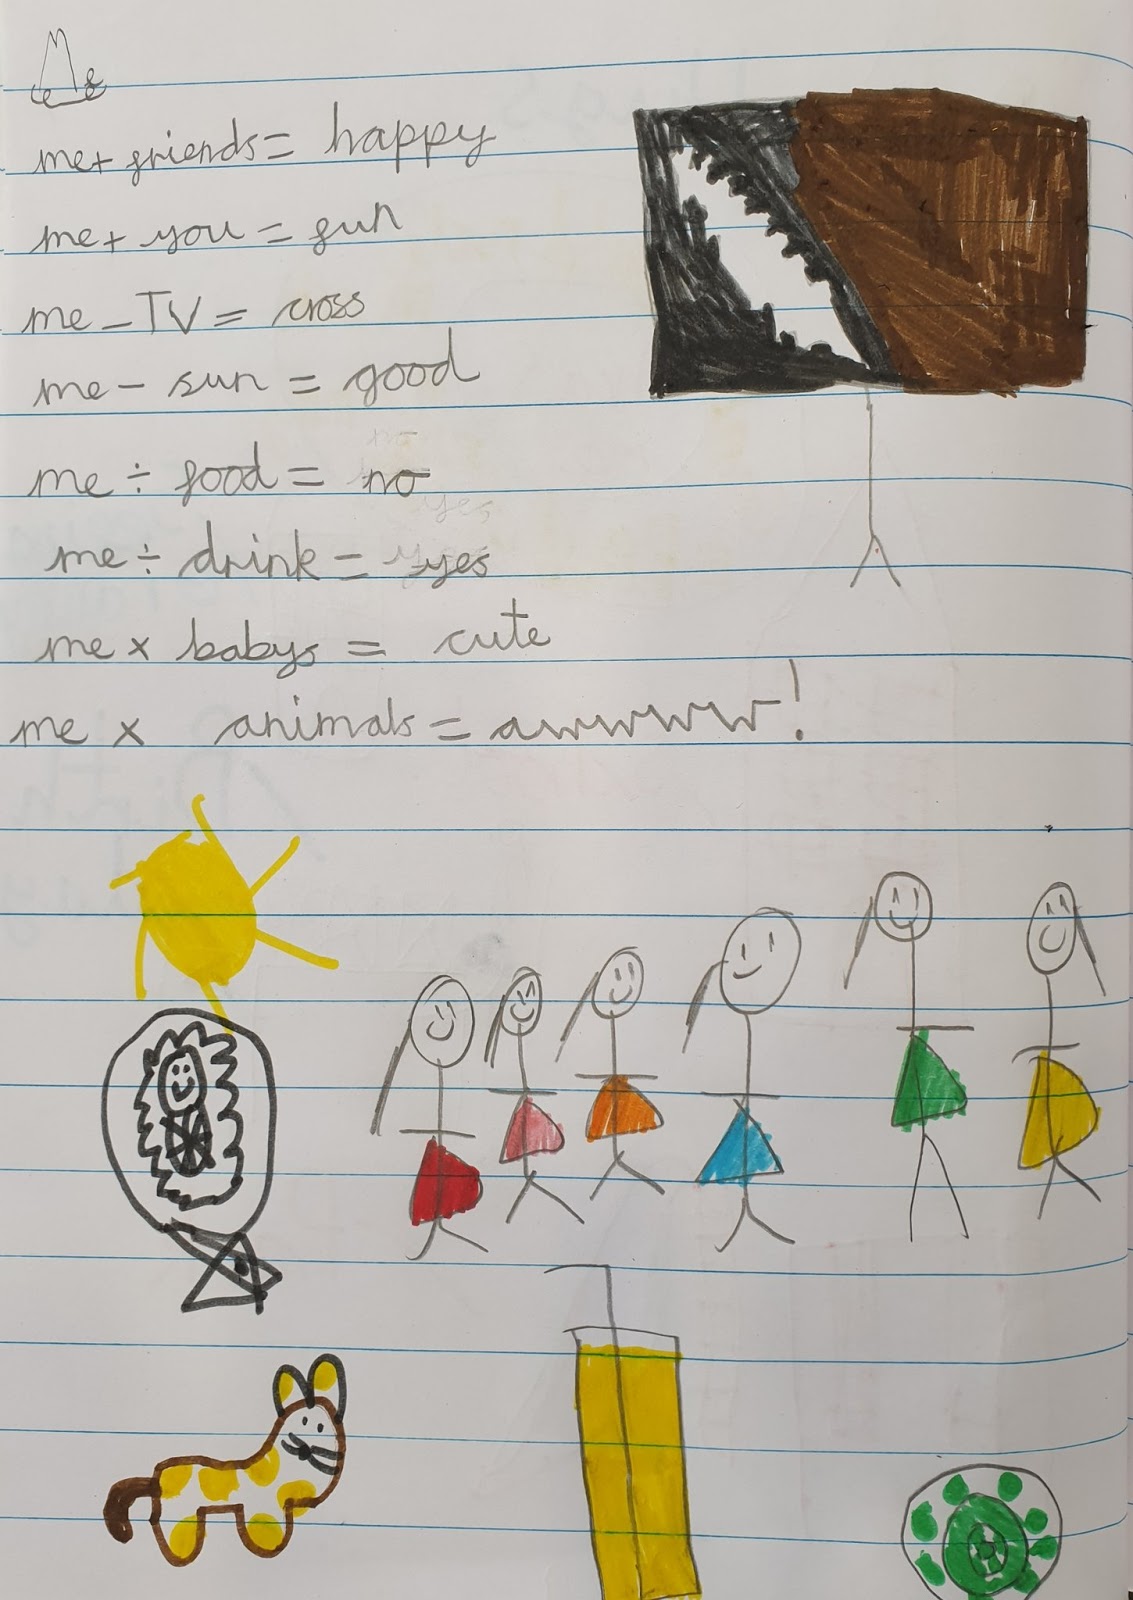 Me
me + friends = happy
me + you = fun
me - TV = cross
me - sun = good
me ÷ food = no
me ÷ drink = yes
me x babys = cute
me x animals = awwww!